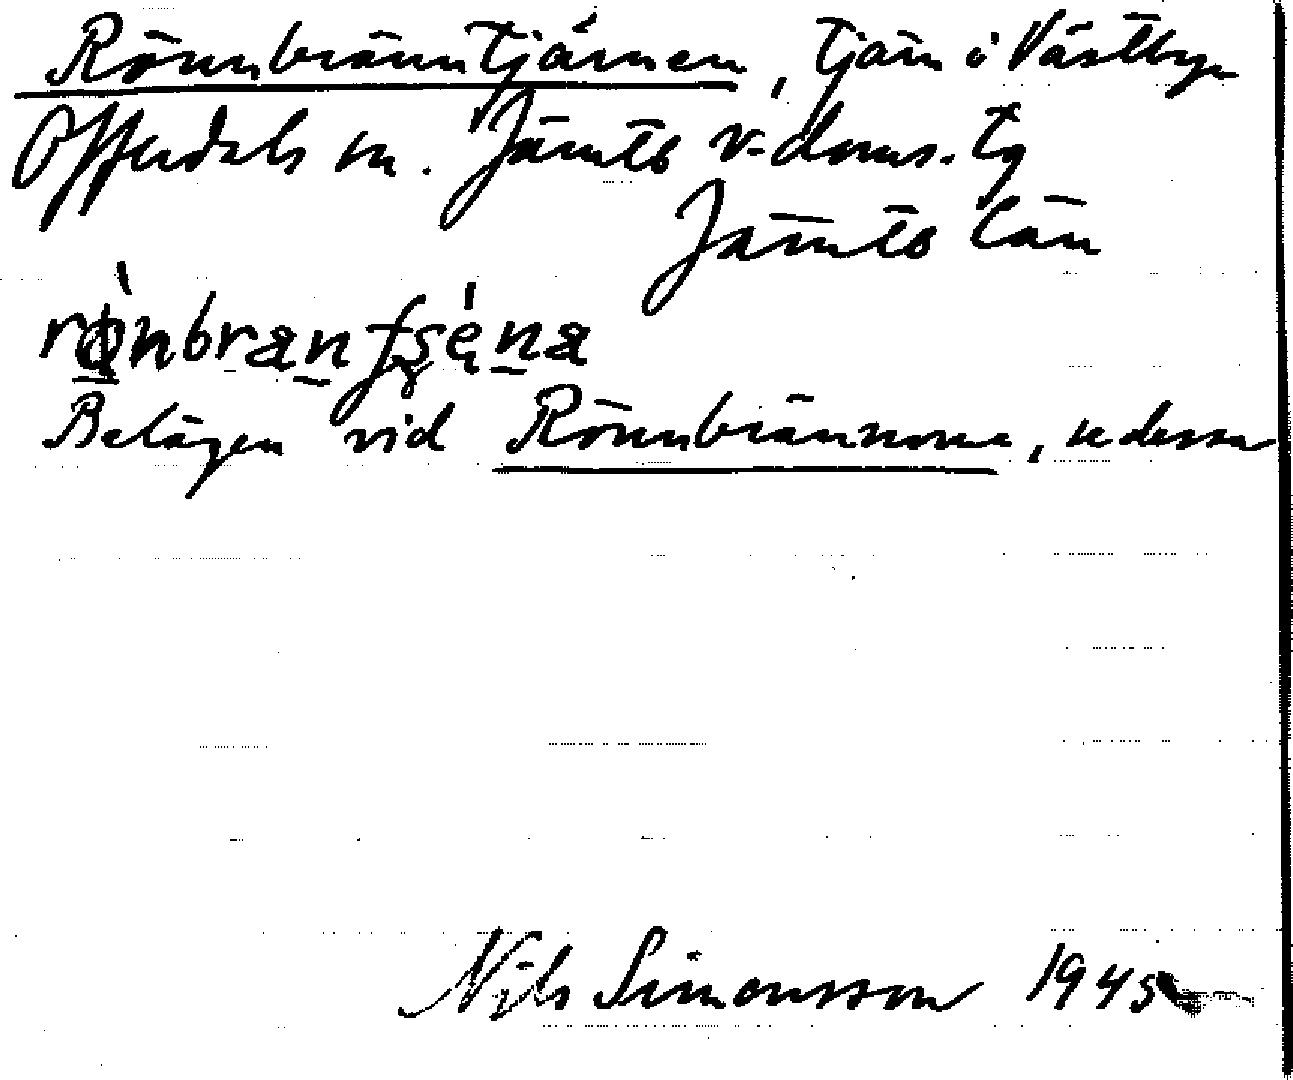 Rönnbränntjärnen, tjärn i Västbyn
Offerdals sn. Jämtls v. doms. tg
Jämtls län
Belägen vid Rönnbrännorna, se dessa
Nils Simonsson 1945